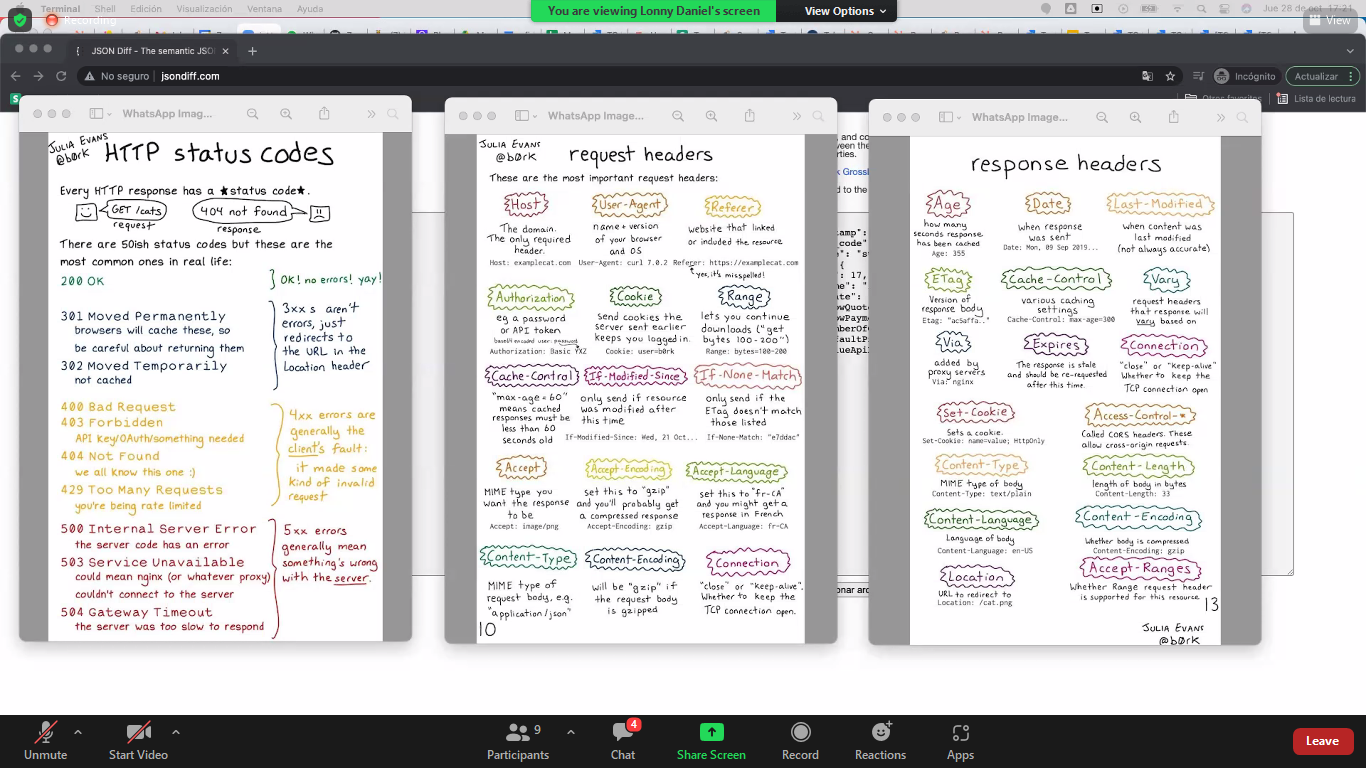 Terminal Shell Edición Visualización Ventana Ayuda
Jue 28 de oct 17:21
Recording
You are viewing Lonny Daniel's screen
View Options
View
JSON Diff - The semantic JSO
No seguro | jsondiff.com
Incógnito
Actualizar
Otros favoritos
Lista de lectura
WhatsApp Imag...
JULIA EVANS
@b0rk
HTTP status codes
Every HTTP response has a ★status code★.
GET /cats
request
404 not found
response
There are 50ish status codes but these are the
most common ones in real life:
200 OK
OK! no errors! yay!
301 Moved Permanently
browsers will cache these, so
be careful about returning them
302 Moved Temporarily
not cached
3xx s aren't
errors, just
redirects to
the URL in the
Location header
400 Bad Request
403 Forbidden
API key/OAuth/something needed
404 Not Found
we all know this one :)
429 Too Many Requests
you're being rate limited
4xx errors are
generally the
client's fault:
it made some
kind of invalid
request
500 Internal Server Error
the server code has an error
503 Service Unavailable
could mean nginx (or whatever proxy)
couldn't connect to the server
504 Gateway Timeout
the server was too slow to respond
5xx errors
generally mean
something's wrong
with the server.
WhatsApp Image...
JULIA EVANS
@b0rk
request headers
These are the most important request headers:
Host
The domain.
The only required
header.
Host: examplecat.com
User-Agent
name + version
of your browser
and OS
User-Agent: curl 7.0.2
Referer
website that linked
or included the resource
Referer: https://examplecat.com
yes, it's misspelled!
Authorization
eg a password
or API token
base64 encoded user: password
Authorization: Basic YXZ
Cookie
send cookies the
server sent earlier
keeps you logged in.
Cookie: user=b0rk
Range
lets you continue
downloads ("get
bytes 100-200")
Range: bytes=100-200
Cache-Control
"max-age = 60"
means cached
responses must be
less than 60
seconds old
If-Modified-Since
only send if resource
was modified after
this time
If-Modified-Since: Wed, 21 Oct...
If-None-Match
only send if the
ETag doesn't match
those listed
If-None-Match: "e7ddac"
Accept
MIME type you
want the response
to be
Accept: image/png
Accept-Encoding
set this to "gzip"
and you'll probably get
a compressed response
Accept-Encoding: gzip
Accept-Language
set this to "fr-CA"
and you might get a
response in French
Accept-Language: fr-CA
Content-Type
MIME type of
request body, e.g.
"application/json"
Content-Encoding
will be "gzip" if
the request body
is gzipped
Connection
"close" or "keep-alive".
Whether to keep the
TCP connection open.
10
WhatsApp Image...
response headers
Age
how many
seconds response
has been cached
Age: 355
Date
when response
was sent
Date: Mon, 09 Sep 2019...
Last-Modified
when content was
last modified
(not always accurate)
ETag
Version of
response body
Etag: "ac5affa.."
Cache-Control
various caching
settings
Cache-Control: max-age=300
Vary
request headers
that response will
vary based on
Via
added by
proxy servers
Via: nginx
Expires
The response is stale
and should be re-requested
after this time.
Connection
"close" or "keep-alive"
Whether to keep the
TCP connection open
Set-Cookie
Sets a cookie.
Set-Cookie: name=value; HttpOnly
Access-Control-*
Called CORS headers. These
allow cross-origin requests.
Content-Type
MIME type of body
Content-Type: text/plain
Content-Length
length of body in bytes
Content-Length: 33
Content-Language
Language of body
Content-Language: en-US
Content-Encoding
Whether body is compressed
Content-Encoding: gzip
Location
URL to redirect to
Location: /cat.png
Accept-Ranges
Whether Range request header
is supported for this resource
13
JULIA EVANS
@b0rk
Unmute
Start Video
9
Participants
4
Chat
Share Screen
Record
Reactions
Apps
Leave